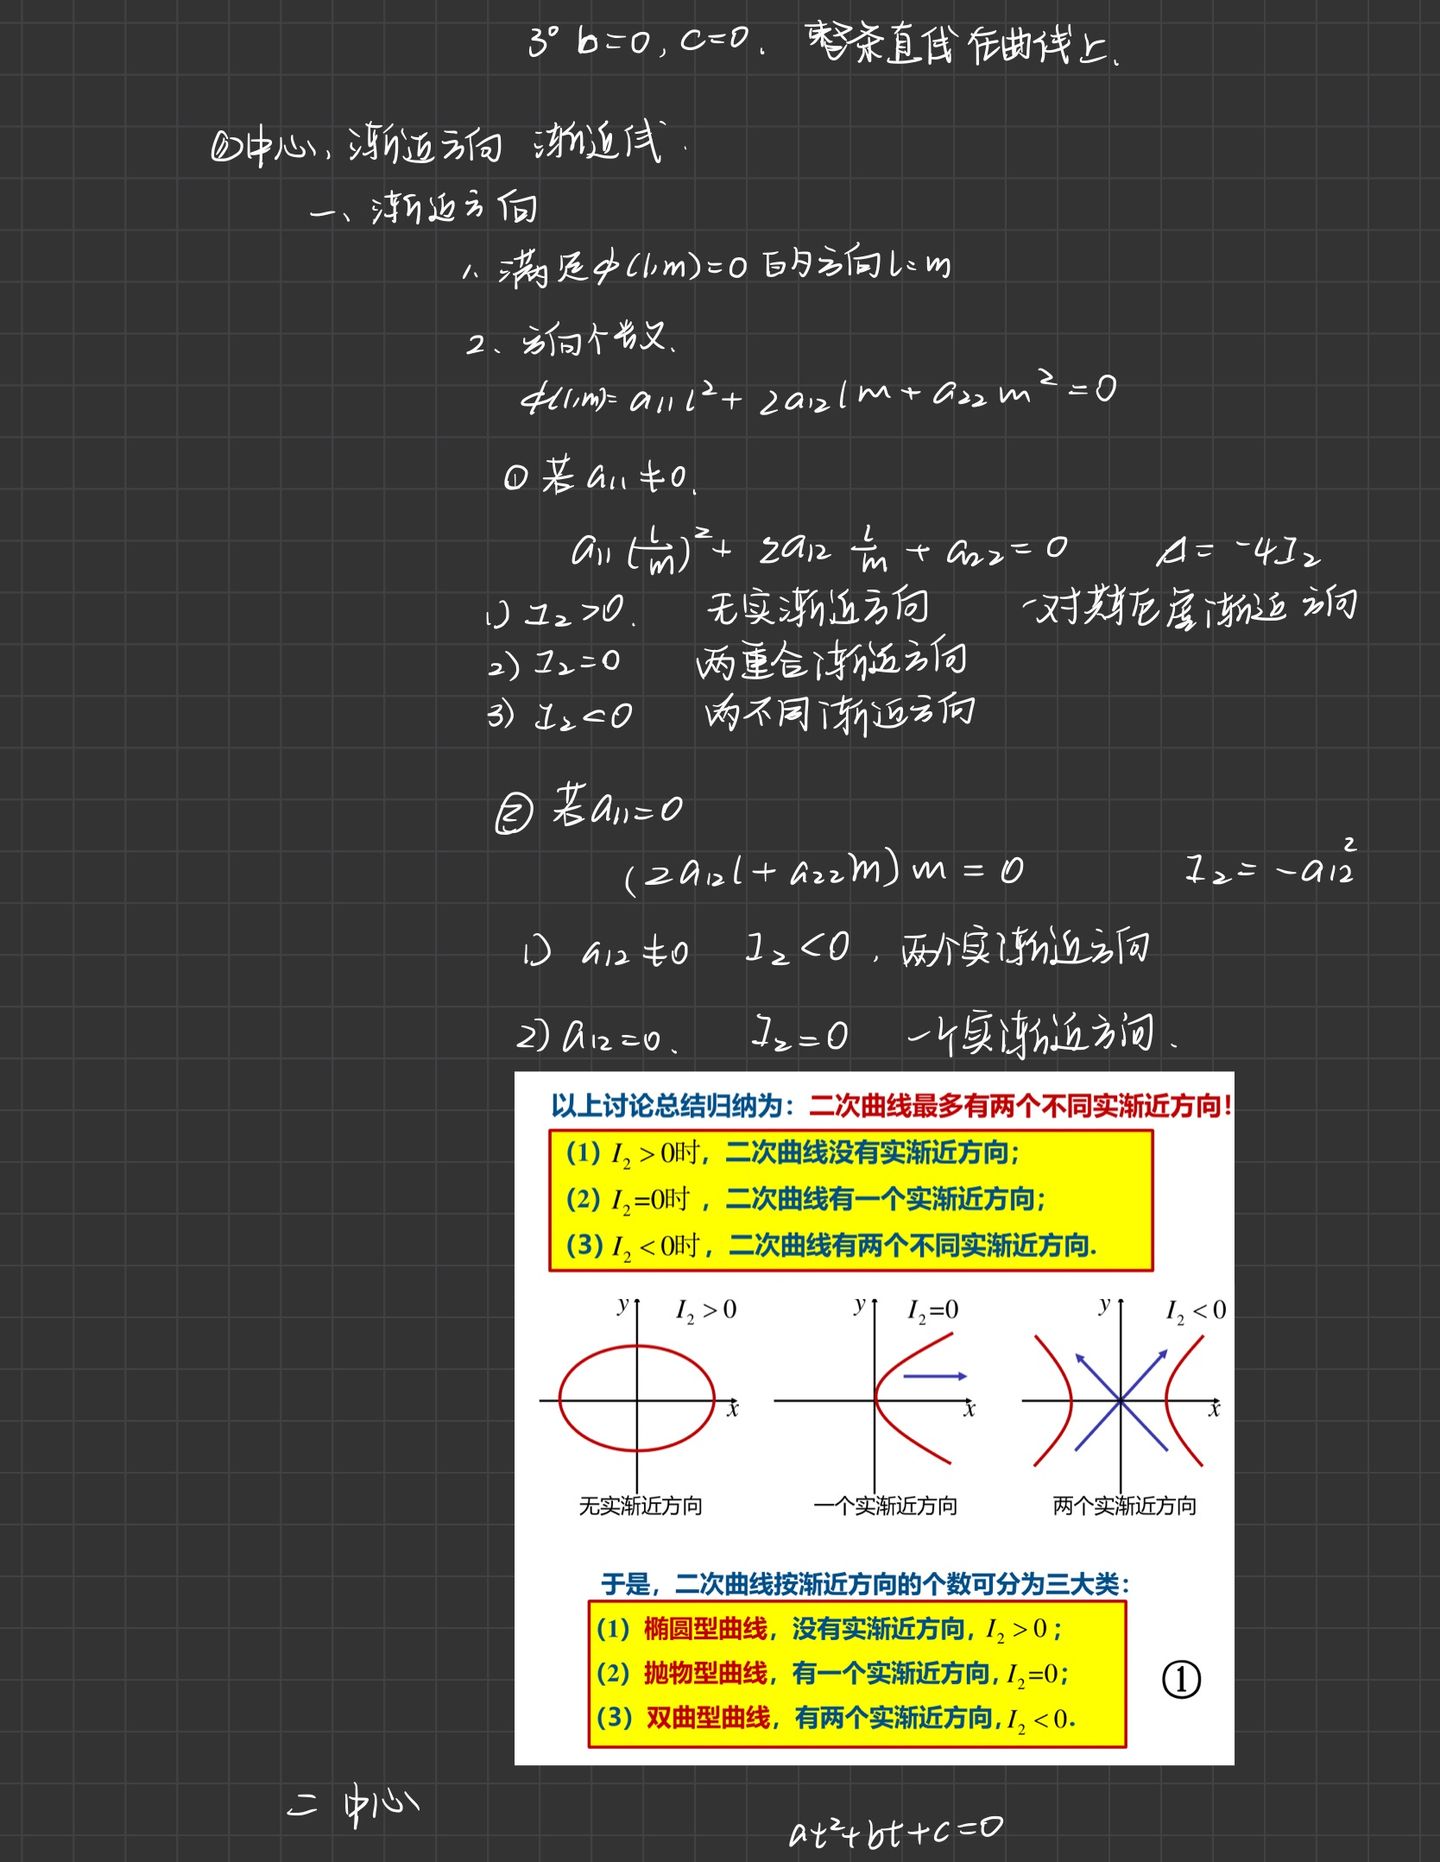 3° b=0, c=0. 整条直线在曲线上.
②中心, 渐近方向 渐近线.
一、渐近方向
1. 满足φ(l,m)=0的方向l:m
2、方向个数.
φ(l,m)=a₁₁l²+2a₁₂lm+a₂₂m²=0
① 若a₁₁≠0.
a₁₁(l/m)²+2a₁₂ l/m+a₂₂=0 Δ=-4I₂
1) I₂>0. 无实渐近方向 一对共轭虚渐近方向
2) I₂=0 两重合渐近方向
3) I₂<0 两不同渐近方向
② 若a₁₁=0
(2a₁₂l+a₂₂m)m=0 I₂=-a₁₂²
1) a₁₂≠0 I₂<0, 两个实渐近方向
2) a₁₂=0. I₂=0 一个实渐近方向.
以上讨论总结归纳为：二次曲线最多有两个不同实渐近方向!
(1) I₂>0时，二次曲线没有实渐近方向;
(2) I₂=0时，二次曲线有一个实渐近方向;
(3) I₂<0时，二次曲线有两个不同实渐近方向.
y I₂>0 y I₂=0 y I₂<0
x x x
无实渐近方向 一个实渐近方向 两个实渐近方向
于是，二次曲线按渐近方向的个数可分为三大类：
(1) 椭圆型曲线，没有实渐近方向, I₂>0;
(2) 抛物型曲线，有一个实渐近方向, I₂=0;
(3) 双曲型曲线，有两个实渐近方向, I₂<0.
①
二 中心
at²+bt+c=0